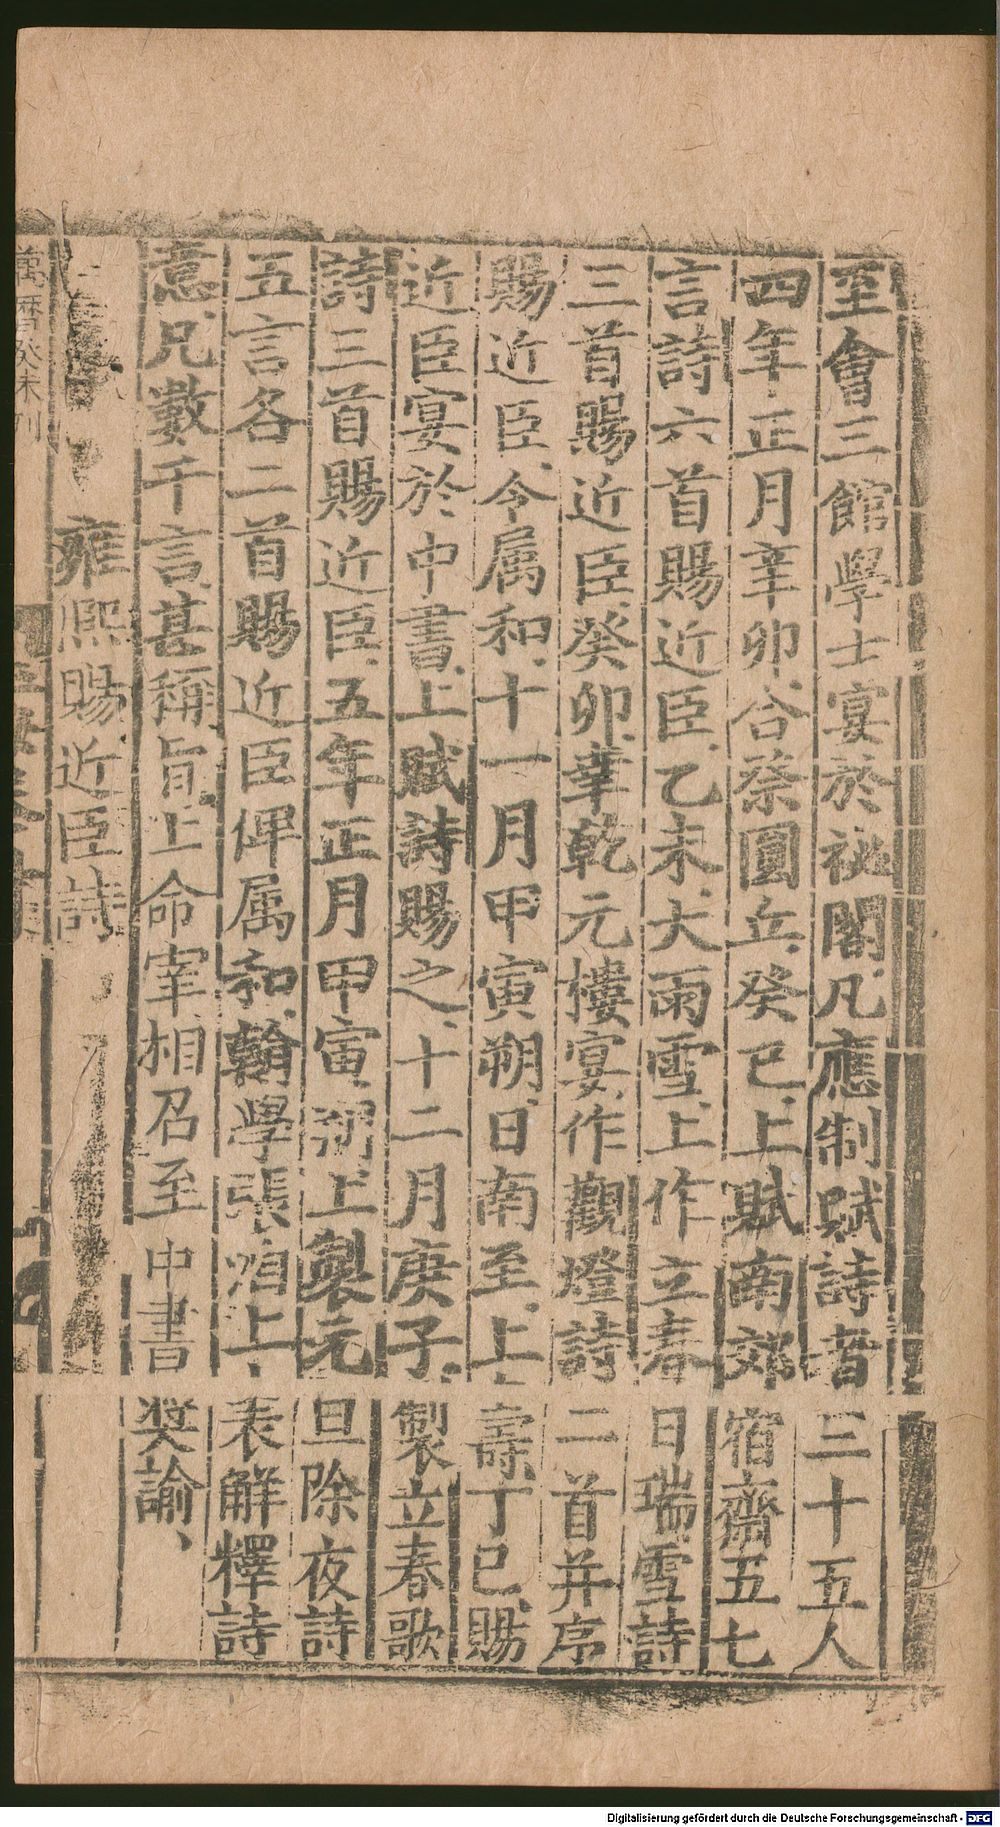 至會三館學士宴於祕閣凡應制賦詩者三十五人
四年正月辛卯合祭圓丘癸巳上賦南郊宿齋五七
言詩六首賜近臣乙未大雨雪上作立春日瑞雪詩
三首賜近臣癸卯幸乾元樓宴作觀燈詩二首并序
賜近臣令属和十一月甲寅朔日南至上壽丁巳賜
近臣宴於中書上賦詩賜之十二月庚子製立春歌
詩三首賜近臣五年正月甲寅朔上製元旦除夜詩
五言各二首賜近臣俾属和翰學張洎上表解釋詩
意凡數千言甚稱旨上命宰相召至中書奬諭
雍熙賜近臣詩
萬曆癸未刊
Digitalisierung gefördert durch die Deutsche Forschungsgemeinschaft - DFG